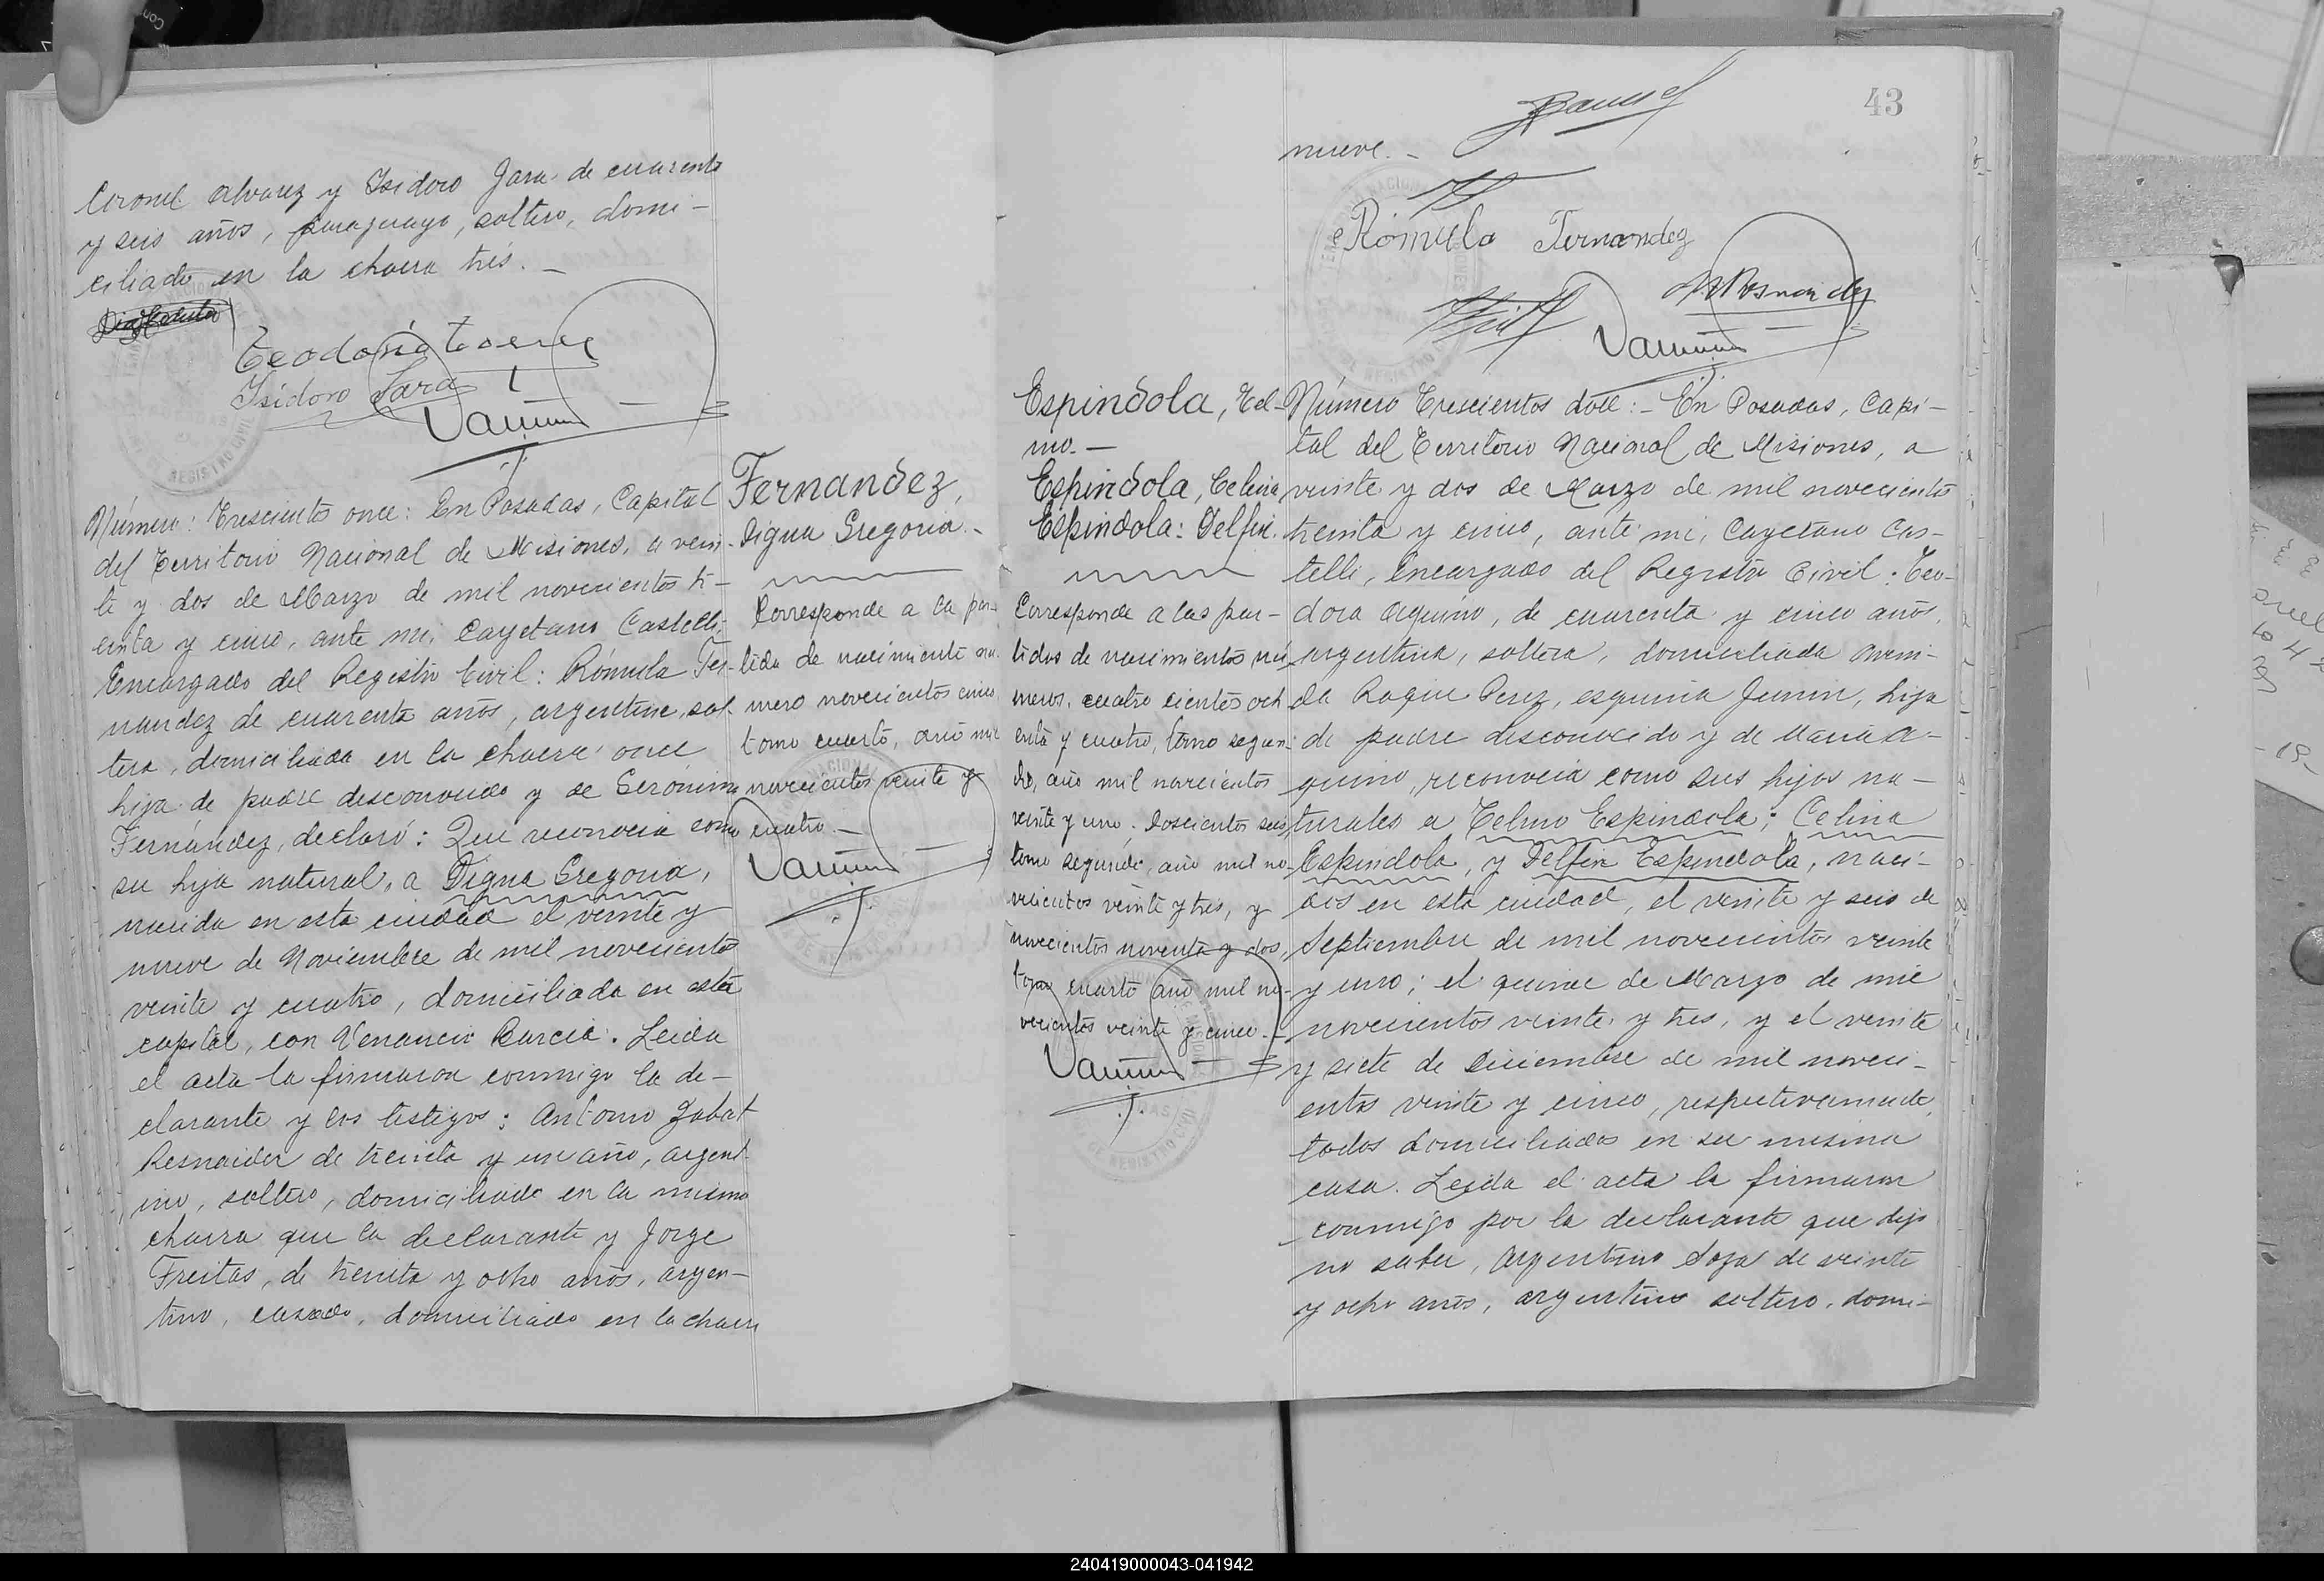 Coronel Alvarez y Isidoro Jara de cuarenta
y seis años, paraguayo, soltero, domi-
ciliado en la chacra trés. -
Isidoro Jara
Número: Trescientos once: En Posadas, Capital
del Territorio Nacional de Misiones, a vein-
te y dos de Marzo de mil novecientos tr-
einta y cinco, ante mi, Cayetano Castelli,
Encargado del Registro Civil: Rómula Fer-
nandez de cuarenta años, argentina, sol-
tera, domiciliada en la chacra once
hija de padre desconocido y de Gerónima
Fernández, declaró: Que reconocia como
su hija natural, a Digna Gregoria,
nacida en esta ciudad el veinte y
nueve de Noviembre de mil novecientos
veinte y cuatro, domiciliada en esta
capital, con Venancio Garcia. Leida
el acta la firmaron conmigo la de-
clarante y los testigos: Antonio
Resnaider de treinta y un año, argent-
ino, soltero, domiciliado en la misma
chacra que la declarante y Jorge
Freitas, de treinta y ocho años, argen-
tino, casado, domiciliado en la chacra
Fernandez,
Digna Gregoria. -
Corresponde a la par-
tida de nacimiento nu-
mero novecientos cinco
tomo cuarto, año mil
novecientos veinte y
cuatro. -
43
nueve. -
Rómula Fernandez
Espindola, Tel-
mo. -
Espindola, Celina
Espindola: Delfin.
Corresponde a las par-
tidas de nacimientos nú-
meros, cuatro cientos och
enta y cuatro, tomo segun-
do, año mil novecientos
veinte y uno. Doscientos seis,
tomo segundo, año mil no-
vecientos veinte y tres, y
novecientos noventa y dos,
tomo cuarto año mil no-
vecientos veinte y cinco. -
Número Trescientos doce: - En Posadas, Capi-
tal del Territorio Nacional de Misiones, a
veinte y dos de Marzo de mil novecientos
treinta y cinco, ante mi, Cayetano Cas-
telli, Encargado del Registro Civil: Teo-
dora Aquino, de cuarenta y cinco años,
argentina, soltera, domiciliada aveni-
da Roque Perez, esquina Junin, hija
de padre desconocido y de Maria A-
quino, reconocia como sus hijos na-
turales a Telmo Espindola; Celina
Espindola, y Delfin Espindola, naci-
dos en esta ciudad, el veinte y seis de
Septiembre de mil novecientos veinte
y uno; el quince de Marzo de mil
novecientos veinte y tres, y el veinte
y siete de Diciembre de mil noveci-
entos veinte y cinco, respectivamente,
todos domiciliados en su misma
casa. Leida el acta la firmaron
conmigo por la declarante que dijo
no saber, Argentino Soza de veinte
y ocho años, argentino soltero, domi-
240419000043-041942